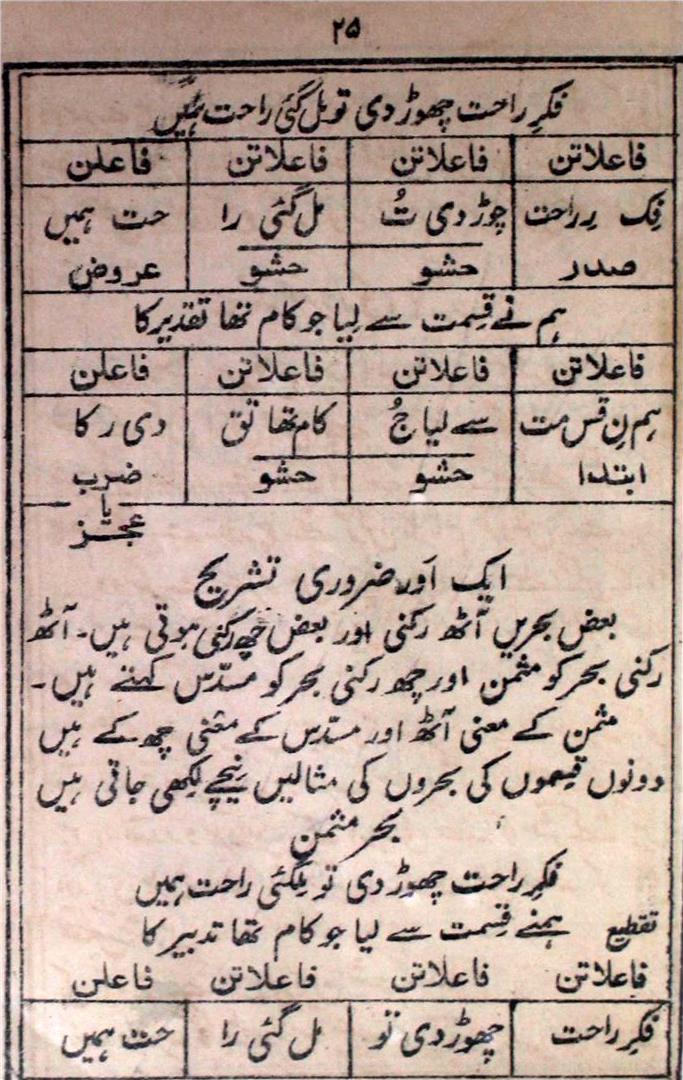 ۲۵
فکرِ راحت چھوڑ دی تو مل گئی راحت ہمیں
فاعلاتن فاعلاتن فاعلاتن فاعلن
فِک رِ راحت چوڑ دی تُ مل گئی را حت ہمیں
صدر حشو حشو عروض
ہم نے قِسمت سے لِیا جو کام تھا تقدیر کا
فاعلاتن فاعلاتن فاعلاتن فاعلن
ہم نِ قس مت سے لیا جُ کام تھا تق دی ر کا
ابتدا حشو حشو ضرب
یا
عجز
ایک اَور ضروری تشریح
بعض بحریں آٹھ رکنی اور بعض چھ رکنی ہوتی ہیں۔ آٹھ
رکنی بحر کو مثمن اور چھ رکنی بحر کو مسدّس کہتے ہیں۔
مثمن کے معنی آٹھ اور مسدّس کے معنی چھ کے ہیں
دونوں قسموں کی بحروں کی مثالیں نیچے لکھی جاتی ہیں
بحر مثمن
فکرِ راحت چھوڑ دی تو ملگئی راحت ہمیں
تقطیع ہمنے قِسمت سے لیا جو کام تھا تدبیر کا
فاعلاتن فاعلاتن فاعلاتن فاعلن
فکرِ راحت چھوڑ دی تو مل گئی را حت ہمیں